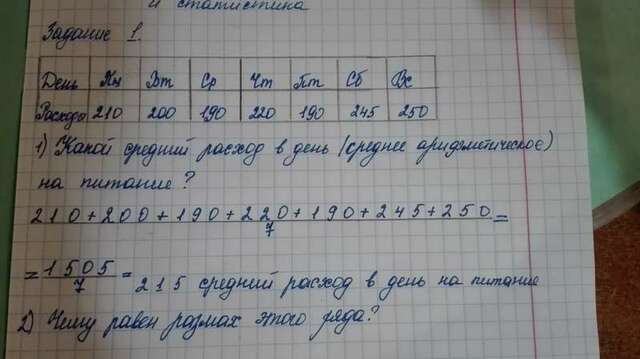 и статистика
Задание 1.
День Пн Вт Ср Чт Пт Сб Вс
Расходы 210 200 190 220 190 245 250
1) Какой средний расход в день (среднее арифметическое)
на питание?
210+200+190+220+190+245+250 =
7
= 1505 = 215 средний расход в день на питание
7
2) Чему равен размах этого ряда?